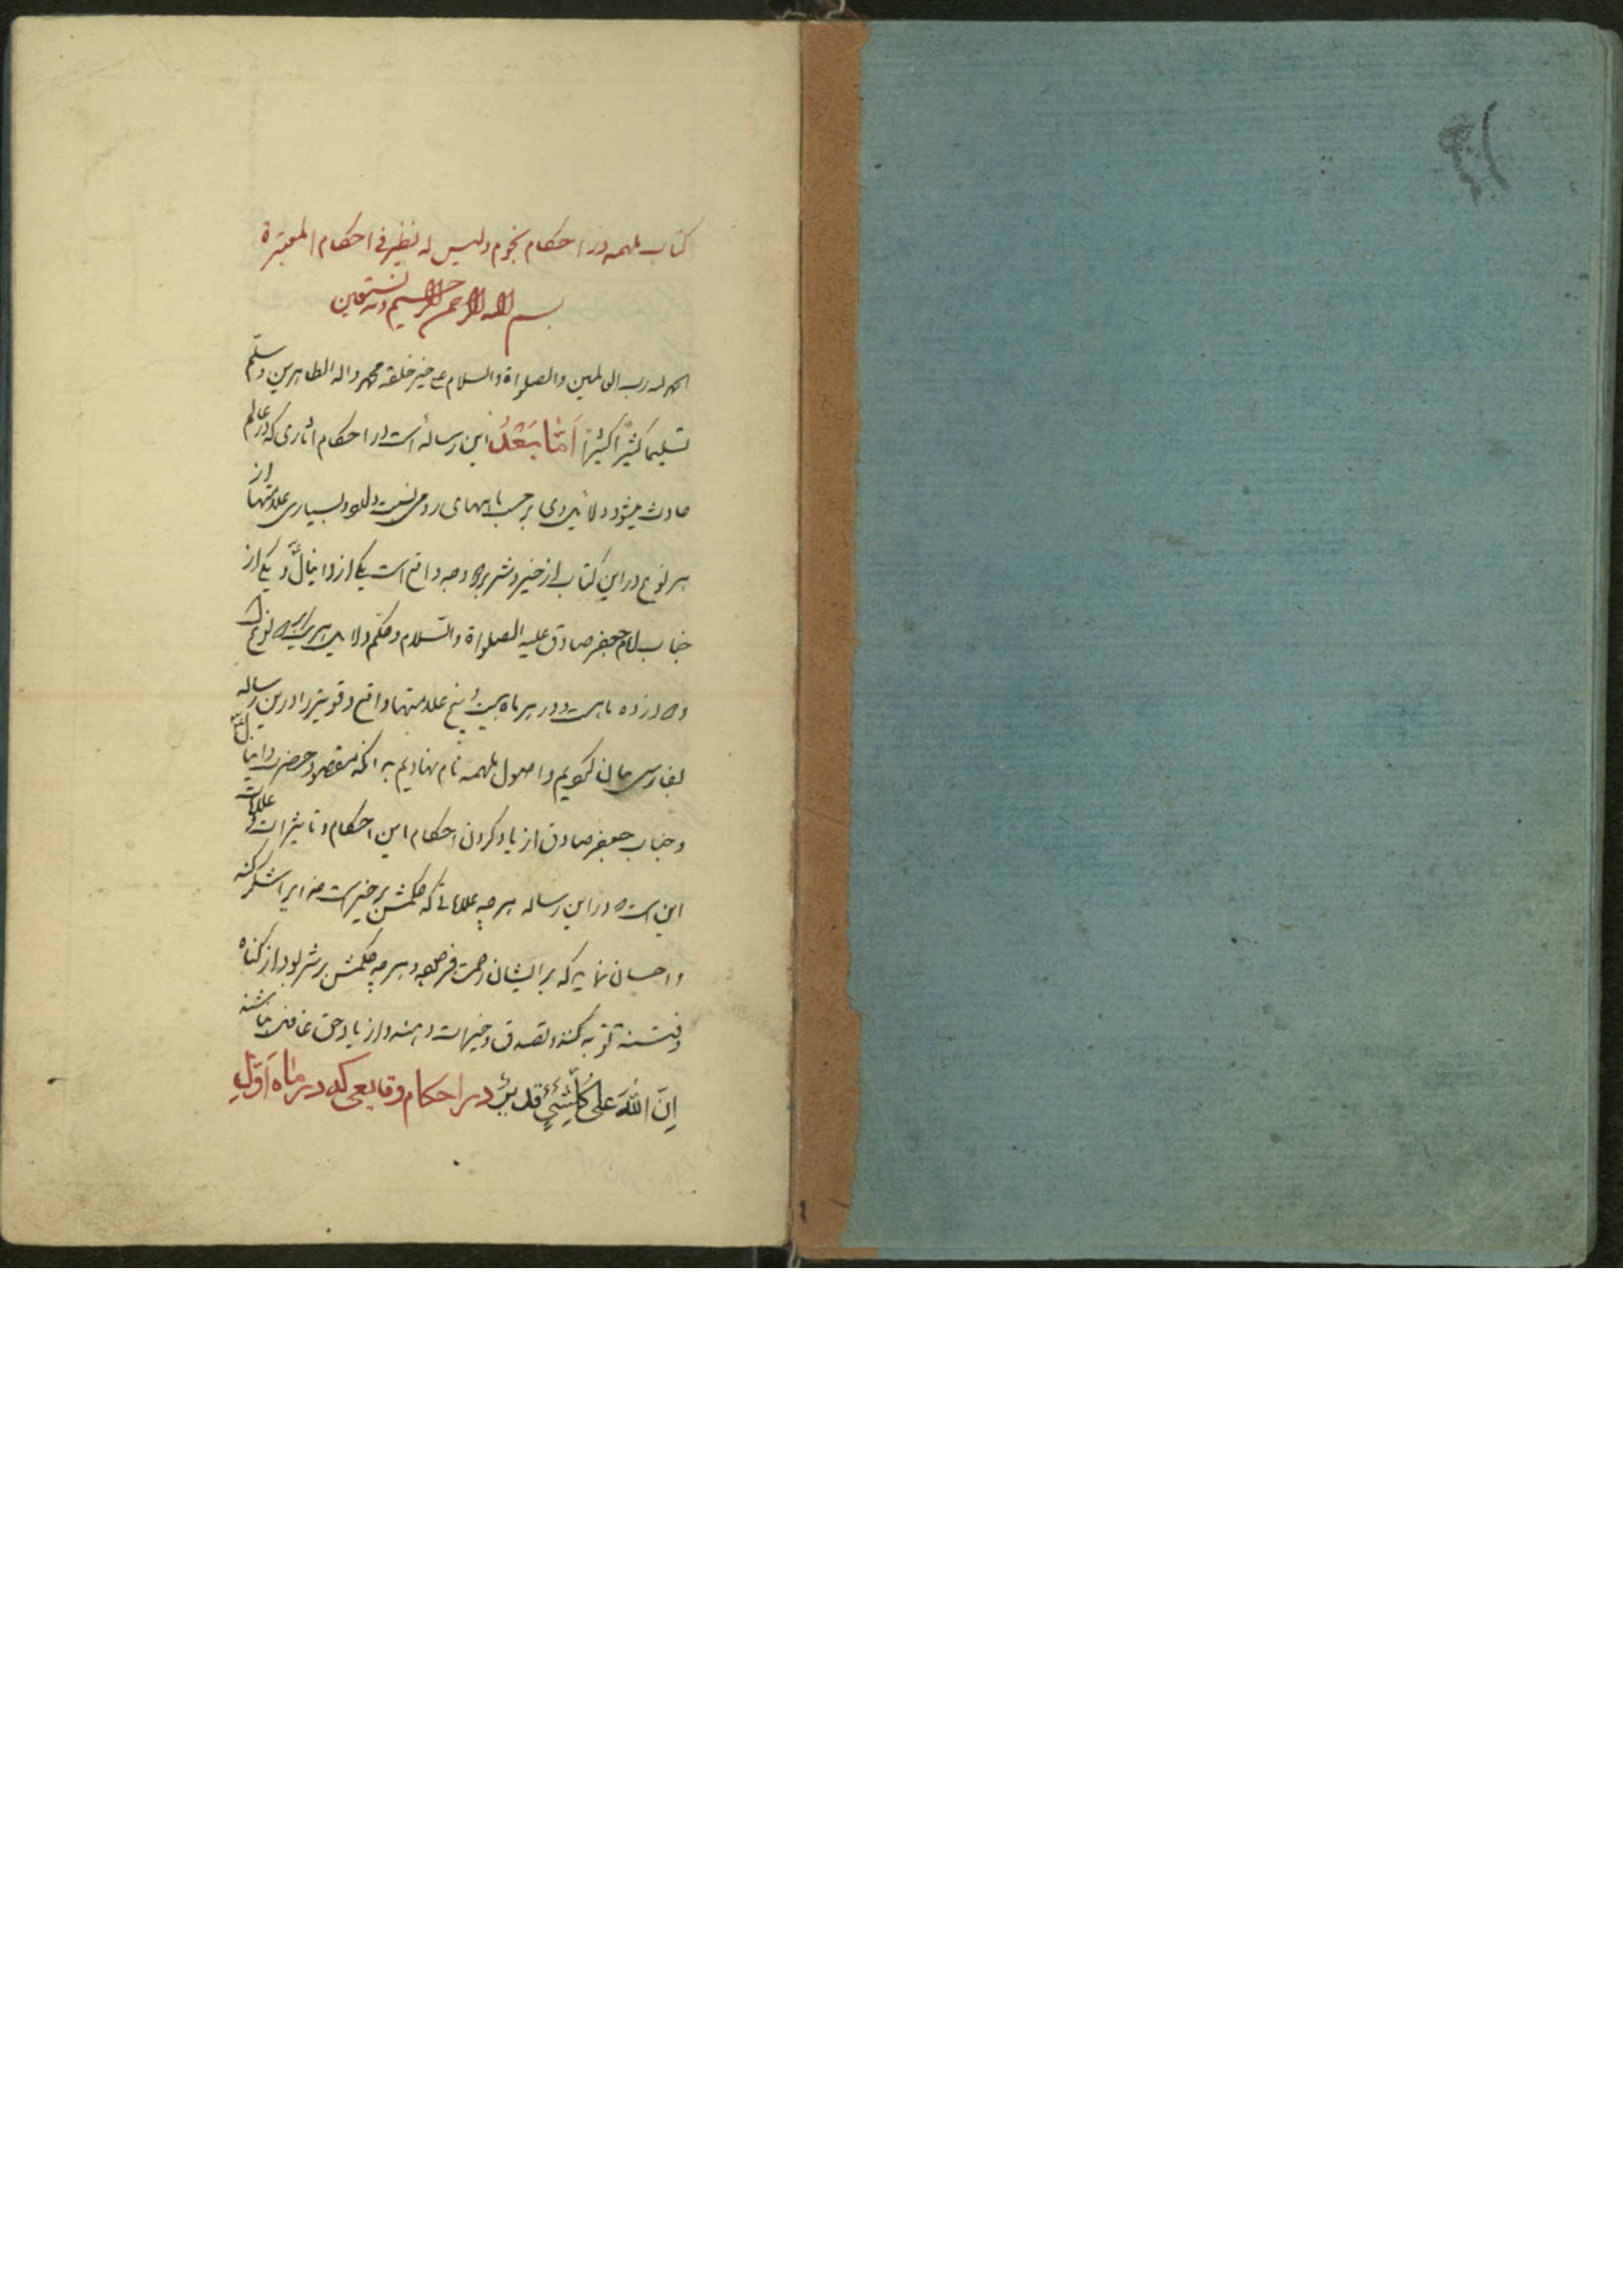 کتاب ملهمه در احکام نجوم ولیس له نظیر فی احکام المعتبرة
بسم الله الرحمن الرحیم وبه نستعین
الحمد لله رب العالمین والصلواة والسلام علی خیر خلقه محمد واله الطاهرین وسلّم
تسلیما کثیرًا کثیرًا اَمّا بَعْدُ این رساله است در احکام اثاری که در عالم
حادث میشود و دلایل وی بر حسب ماههای رومی است و بسیاری علامتها از
هر نوع در این کتاب از خیر و شر بر دو وجه واقع است یکی از دانیال و یکی از
جناب امام جعفر صادق علیه الصلواة والسّلام و حکم دلایل هر نوع
دوازده ماهست و در هر ماه بیست و پنج علامتها واقع در این رساله
بفارسی بیان کویم و اصول ملهمه نام نهادیم به انکه مقصود حضرت دانیال
و جناب جعفر صادق از یاد کردن احکام این احکام و تاثیرات و علامات
این است که در این رساله هر چه علاماتی که حکمش بر خیر است خدایرا شکر کنند
و احسان نمایند که بر ایشان رحمت فرموده و هر چه حکمش بر شر بود از کناه
و فتنه توبه کنند و تصدق و خیرات دهند و از یاد حق غافل نباشند
اِنّ اللّٰهَ عَلی کُلّشَیٍٔ قَدیرٌ در احکام وقایعی که در ماه اَوّلِ